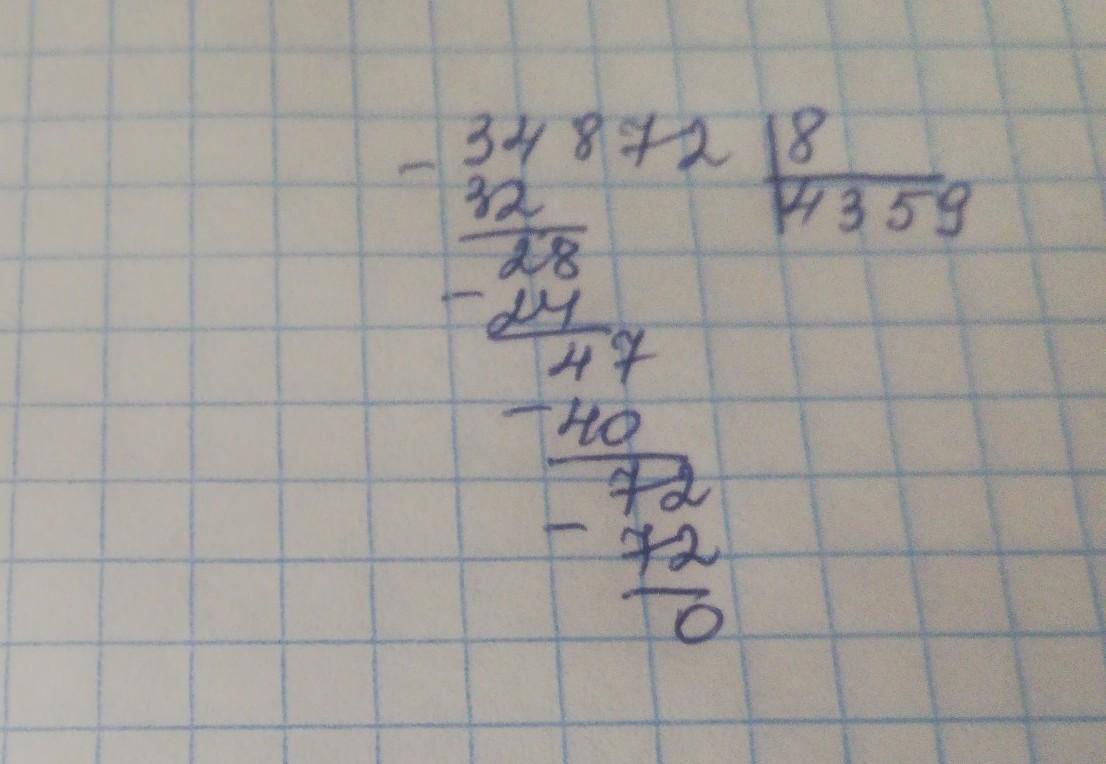 - 34872 8
32 4359
28
- 24
47
- 40
72
- 72
0